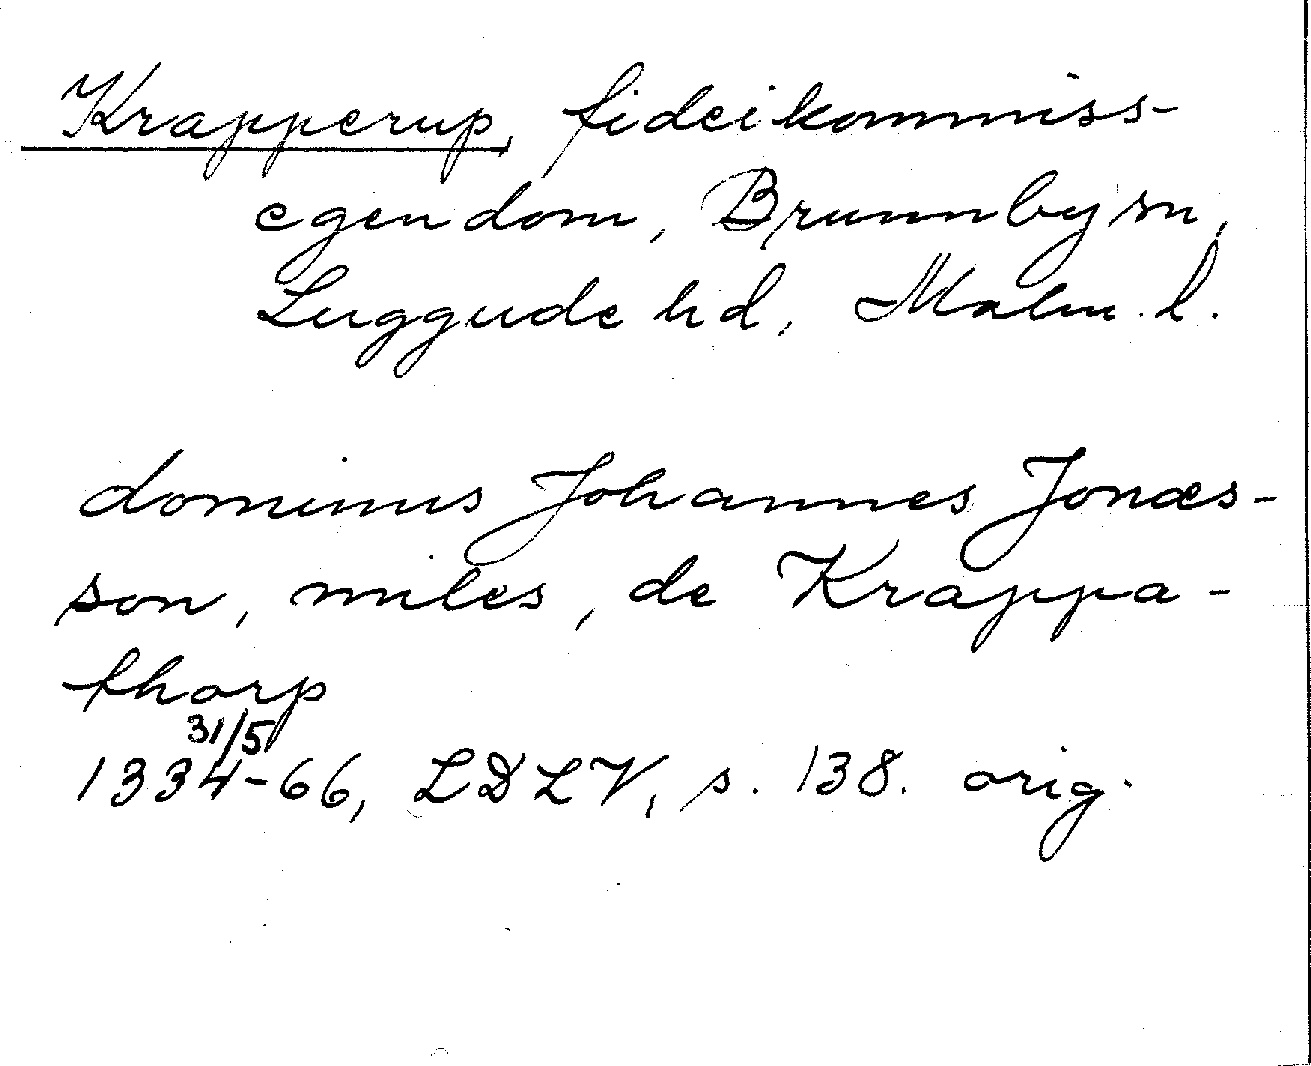 Krapperup, fideikommiss-
egendom, Brunnby sn,
Luggude hd, Malm. l.
dominus Johannes Jonæs-
son, miles, de Krappa-
thorp
31/5
1334-66, LDLV, s. 138. orig.